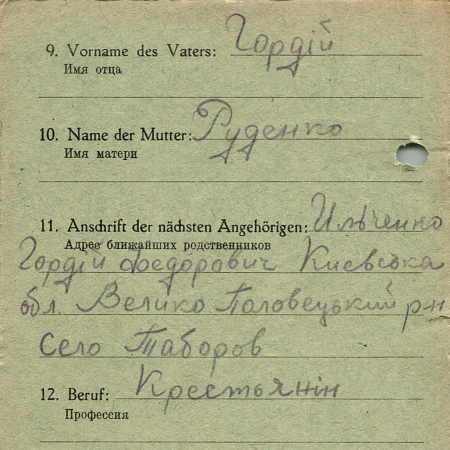 9. Vorname des Vaters: Гордій
Имя отца
10. Name der Mutter: Руденко
Имя матери
11. Anschrift der nächsten Angehörigen: Ильченко
Адрес ближайших родственников
Гордій Федорович Киевська
обл. Велико Половецький р-н
село Таборов
12. Beruf: Крестьянін
Профессия